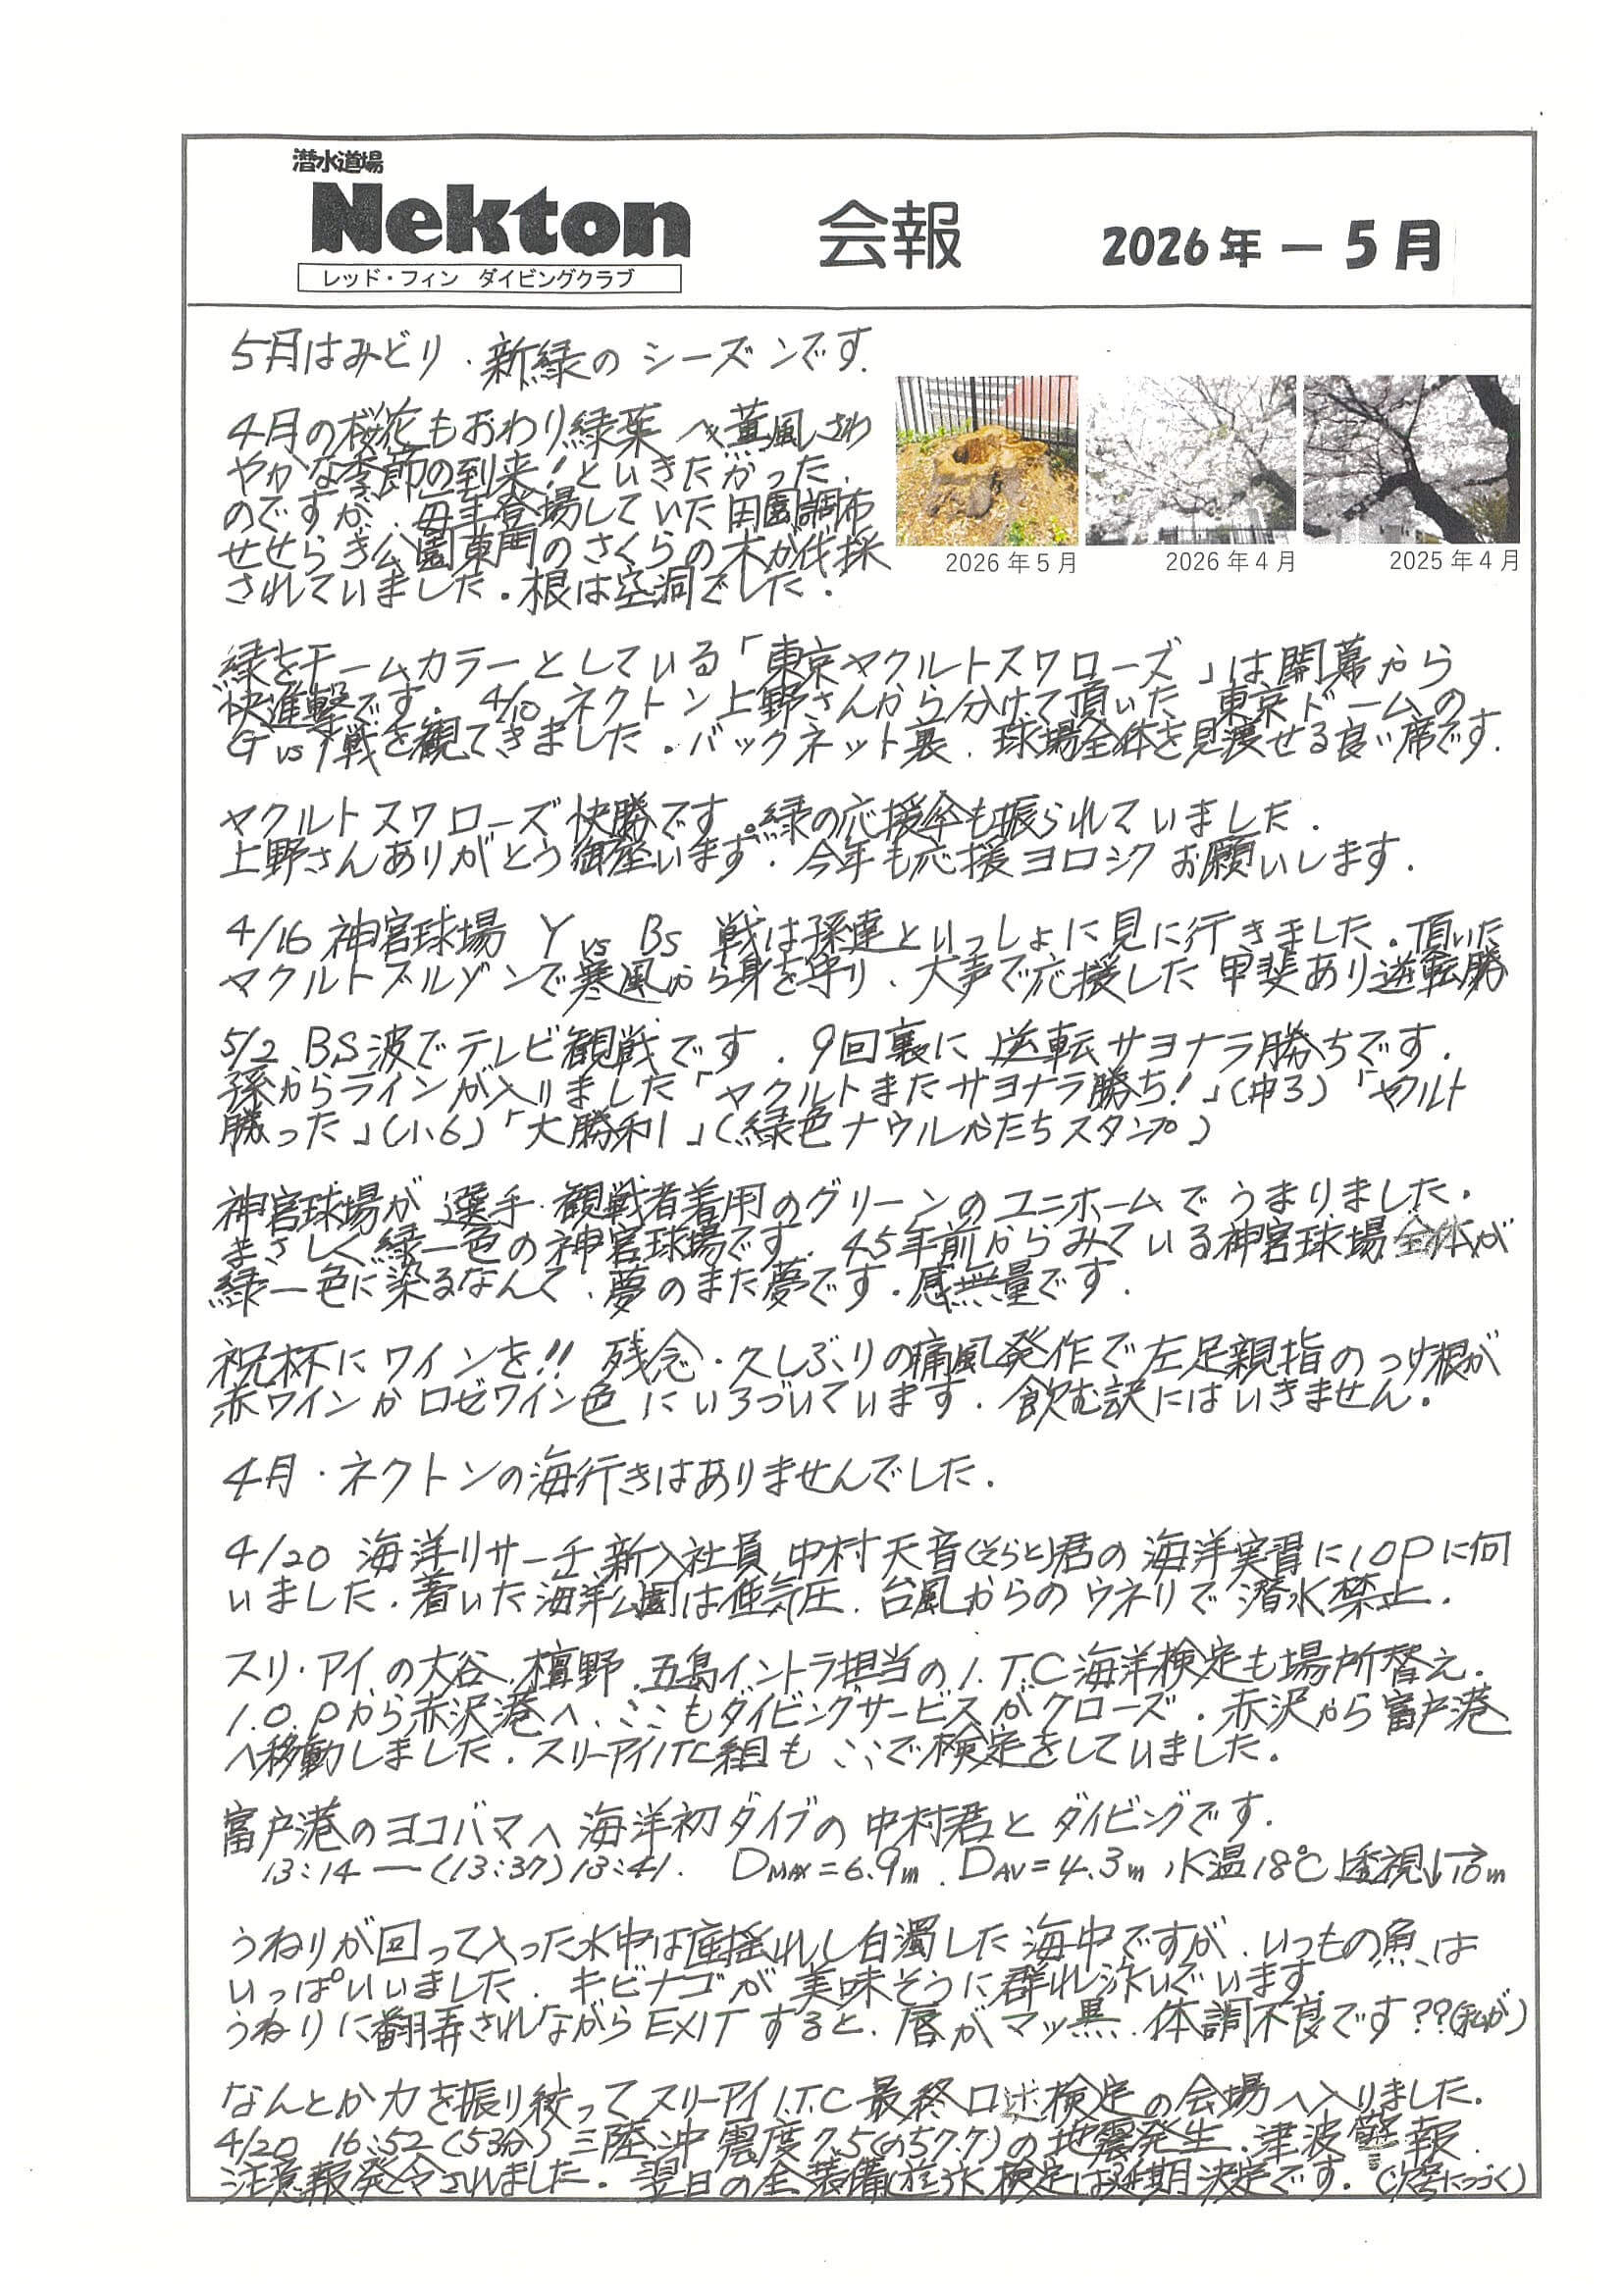 潜水道場
Nekton
レッド・フィン ダイビングクラブ
会報
2026年－5月
5月はみどり・新緑のシーズンです.
4月の桜花もおわり緑葉へ薫風さわ
やかな季節の到来!といきたかった.
のですが、毎年登場していた田園調布
せせらぎ公園東門のさくらの木が伐採
されていました。根は空洞でした.
2026年5月
2026年4月
2025年4月
緑をチームカラーとしている「東京ヤクルトスワローズ」は開幕から
快進撃です. 4/10 ネクトン上野さんから分けて頂いた 東京ドームの
G vs Y戦を観てきました。バックネット裏、球場全体を見渡せる良い席です.
ヤクルトスワローズ快勝です。緑の応援傘も振られていました.
上野さんありがとう御座います. 今年も応援ヨロシクお願いします.
4/16 神宮球場 Y vs Bs 戦は孫達といっしょに見に行きました。頂いた
ヤクルトブルゾンで寒風から身を守り、大声で応援した甲斐あり逆転勝
5/2 BS波でテレビ観戦です. 9回裏に逆転サヨナラ勝ちです.
孫からラインが入りました「ヤクルトまたサヨナラ勝ち!」(中3)「ヤクルト
勝った」(小6)「大勝利!」(緑色ナウルかたちスタンプ)
神宮球場が選手・観戦者着用のグリーンのユニホームでうまりました.
まさしく緑一色の神宮球場です. 45年前からみている神宮球場全体が
緑一色に染るなんて、夢のまた夢です。感無量です.
祝杯にワインを!! 残念・久しぶりの痛風発作で左足親指のつけ根が
赤ワインかロゼワイン色にいろづいています. 飲む訳にはいきません.
4月・ネクトンの海行きはありませんでした.
4/20 海洋リサーチ新入社員 中村天音(そらと)君の海洋実習にI0Pに伺
いました. 着いた海洋公園は低気圧、台風からのウネリで潜水禁止.
スリ・アイの大谷、檀野、五島イントラ担当のI.T.C海洋検定も場所替え.
I.O.Pから赤沢港へ、ここもダイビングサービスがクローズ. 赤沢から富戸港
へ移動しました. スリーアイITC組もここで検定をしていました.
富戸港のヨコバマへ海洋初ダイブの中村君とダイビングです.
13:14―(13:37)13:41. DMAX=6.9m. DAV=4.3m 水温18℃ 透視↓→10m
うねりが回って入った水中は底揺れし白濁した海中ですが、いつもの魚は
いっぱいいました. キビナゴが美味そうに群れ泳いでいます.
うねりに翻弄されながらEXITすると、唇がマッ黒、体調不良です??(私が)
なんとか力を振り絞ってスリーアイI.T.C最終口述検定の会場へ入りました.
4/20 16:52(53分)三陸沖 震度7.5(のち7.7)の地震発生、津波警報.
注意報発令されました. 翌日の全装備 検定は延期決定です. (次号につづく)